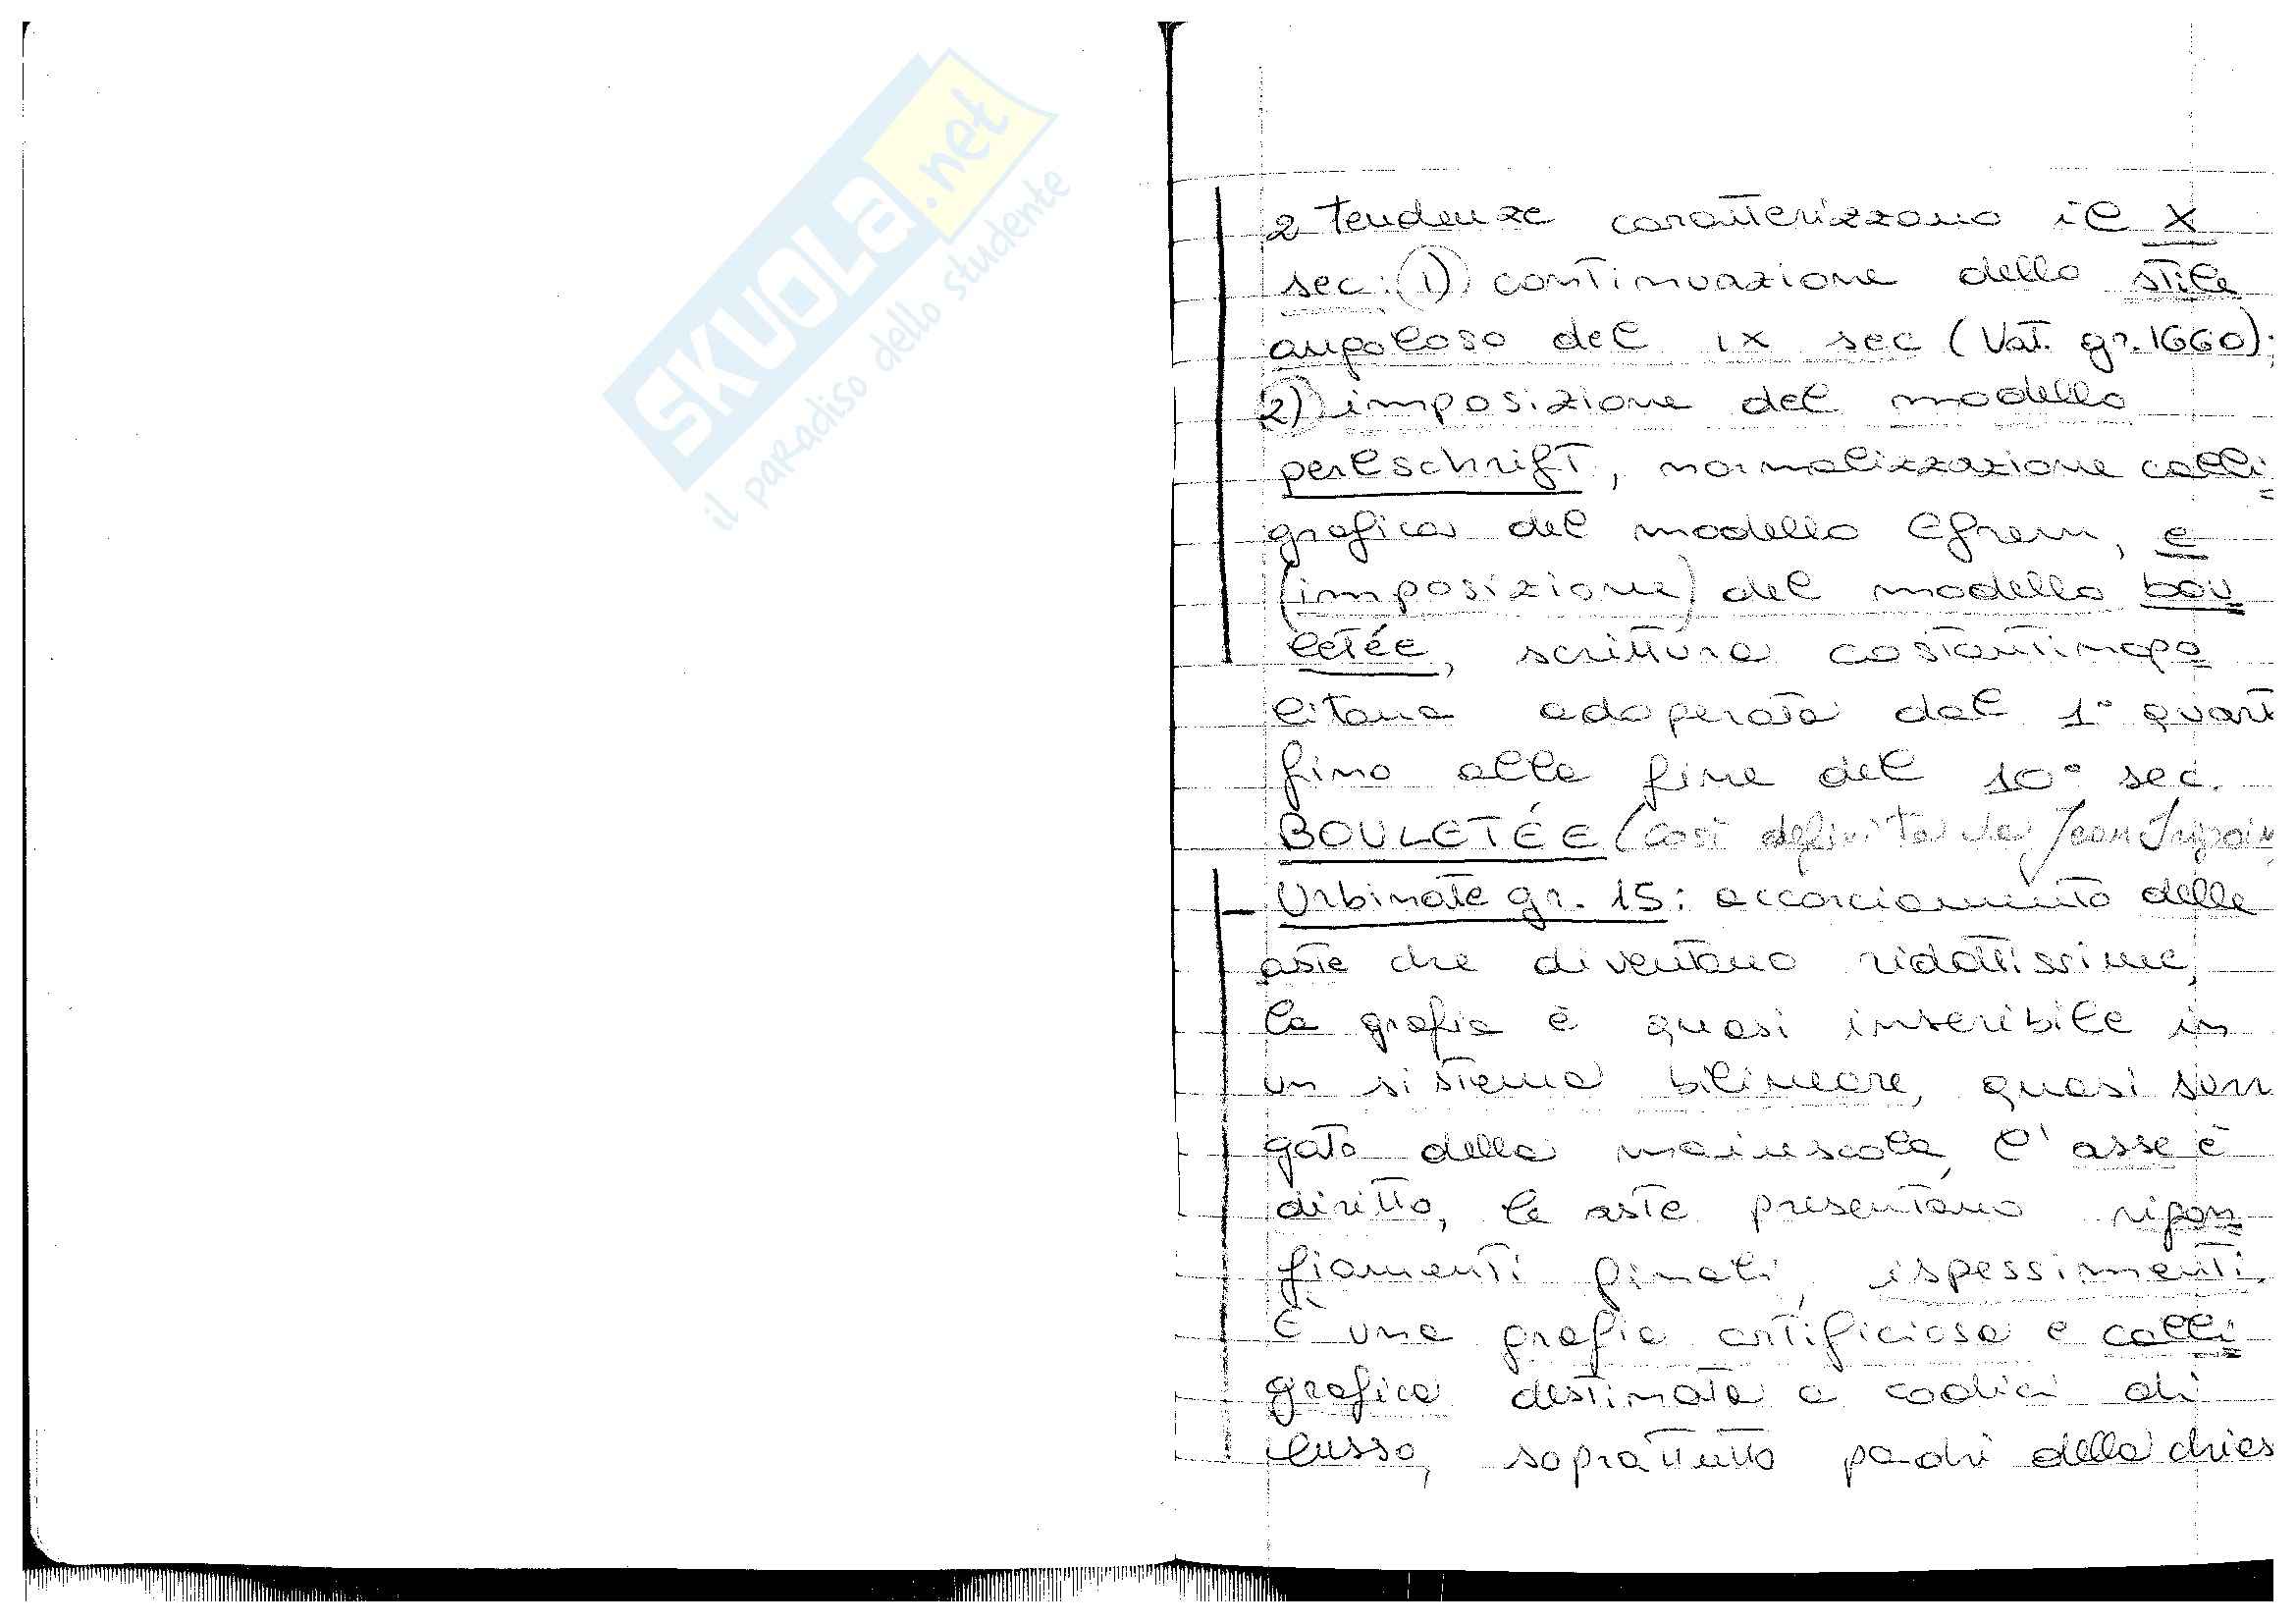 SKUOLA.net
il paradiso dello studente
2 tendenze caratterizzano il X
sec: 1) continuazione dello stile
angoloso del IX sec (Vat. gr. 1660);
2) imposizione del modello
perlschrift, normalizzazione calli=
grafica del modello Efrem, e
(imposizione) del modello bou=
letée, scrittura costantinopo=
litana adoperata dal 1° quart
fino alla fine del 10° sec.
BOULETÉE (così definita da Jean Irigoin
- Urbinate gr. 15: accorciamento delle
aste che diventano ridottissime,
la grafia è quasi inscribile in
un sistema bilineare, quasi surr
gato della maiuscola, l'asse è
diritto, le aste presentano rigon=
fiamenti finali, ispessimenti.
È una grafia artificiosa e calli=
grafica destinata a codici di
lusso, soprattutto padri della chies